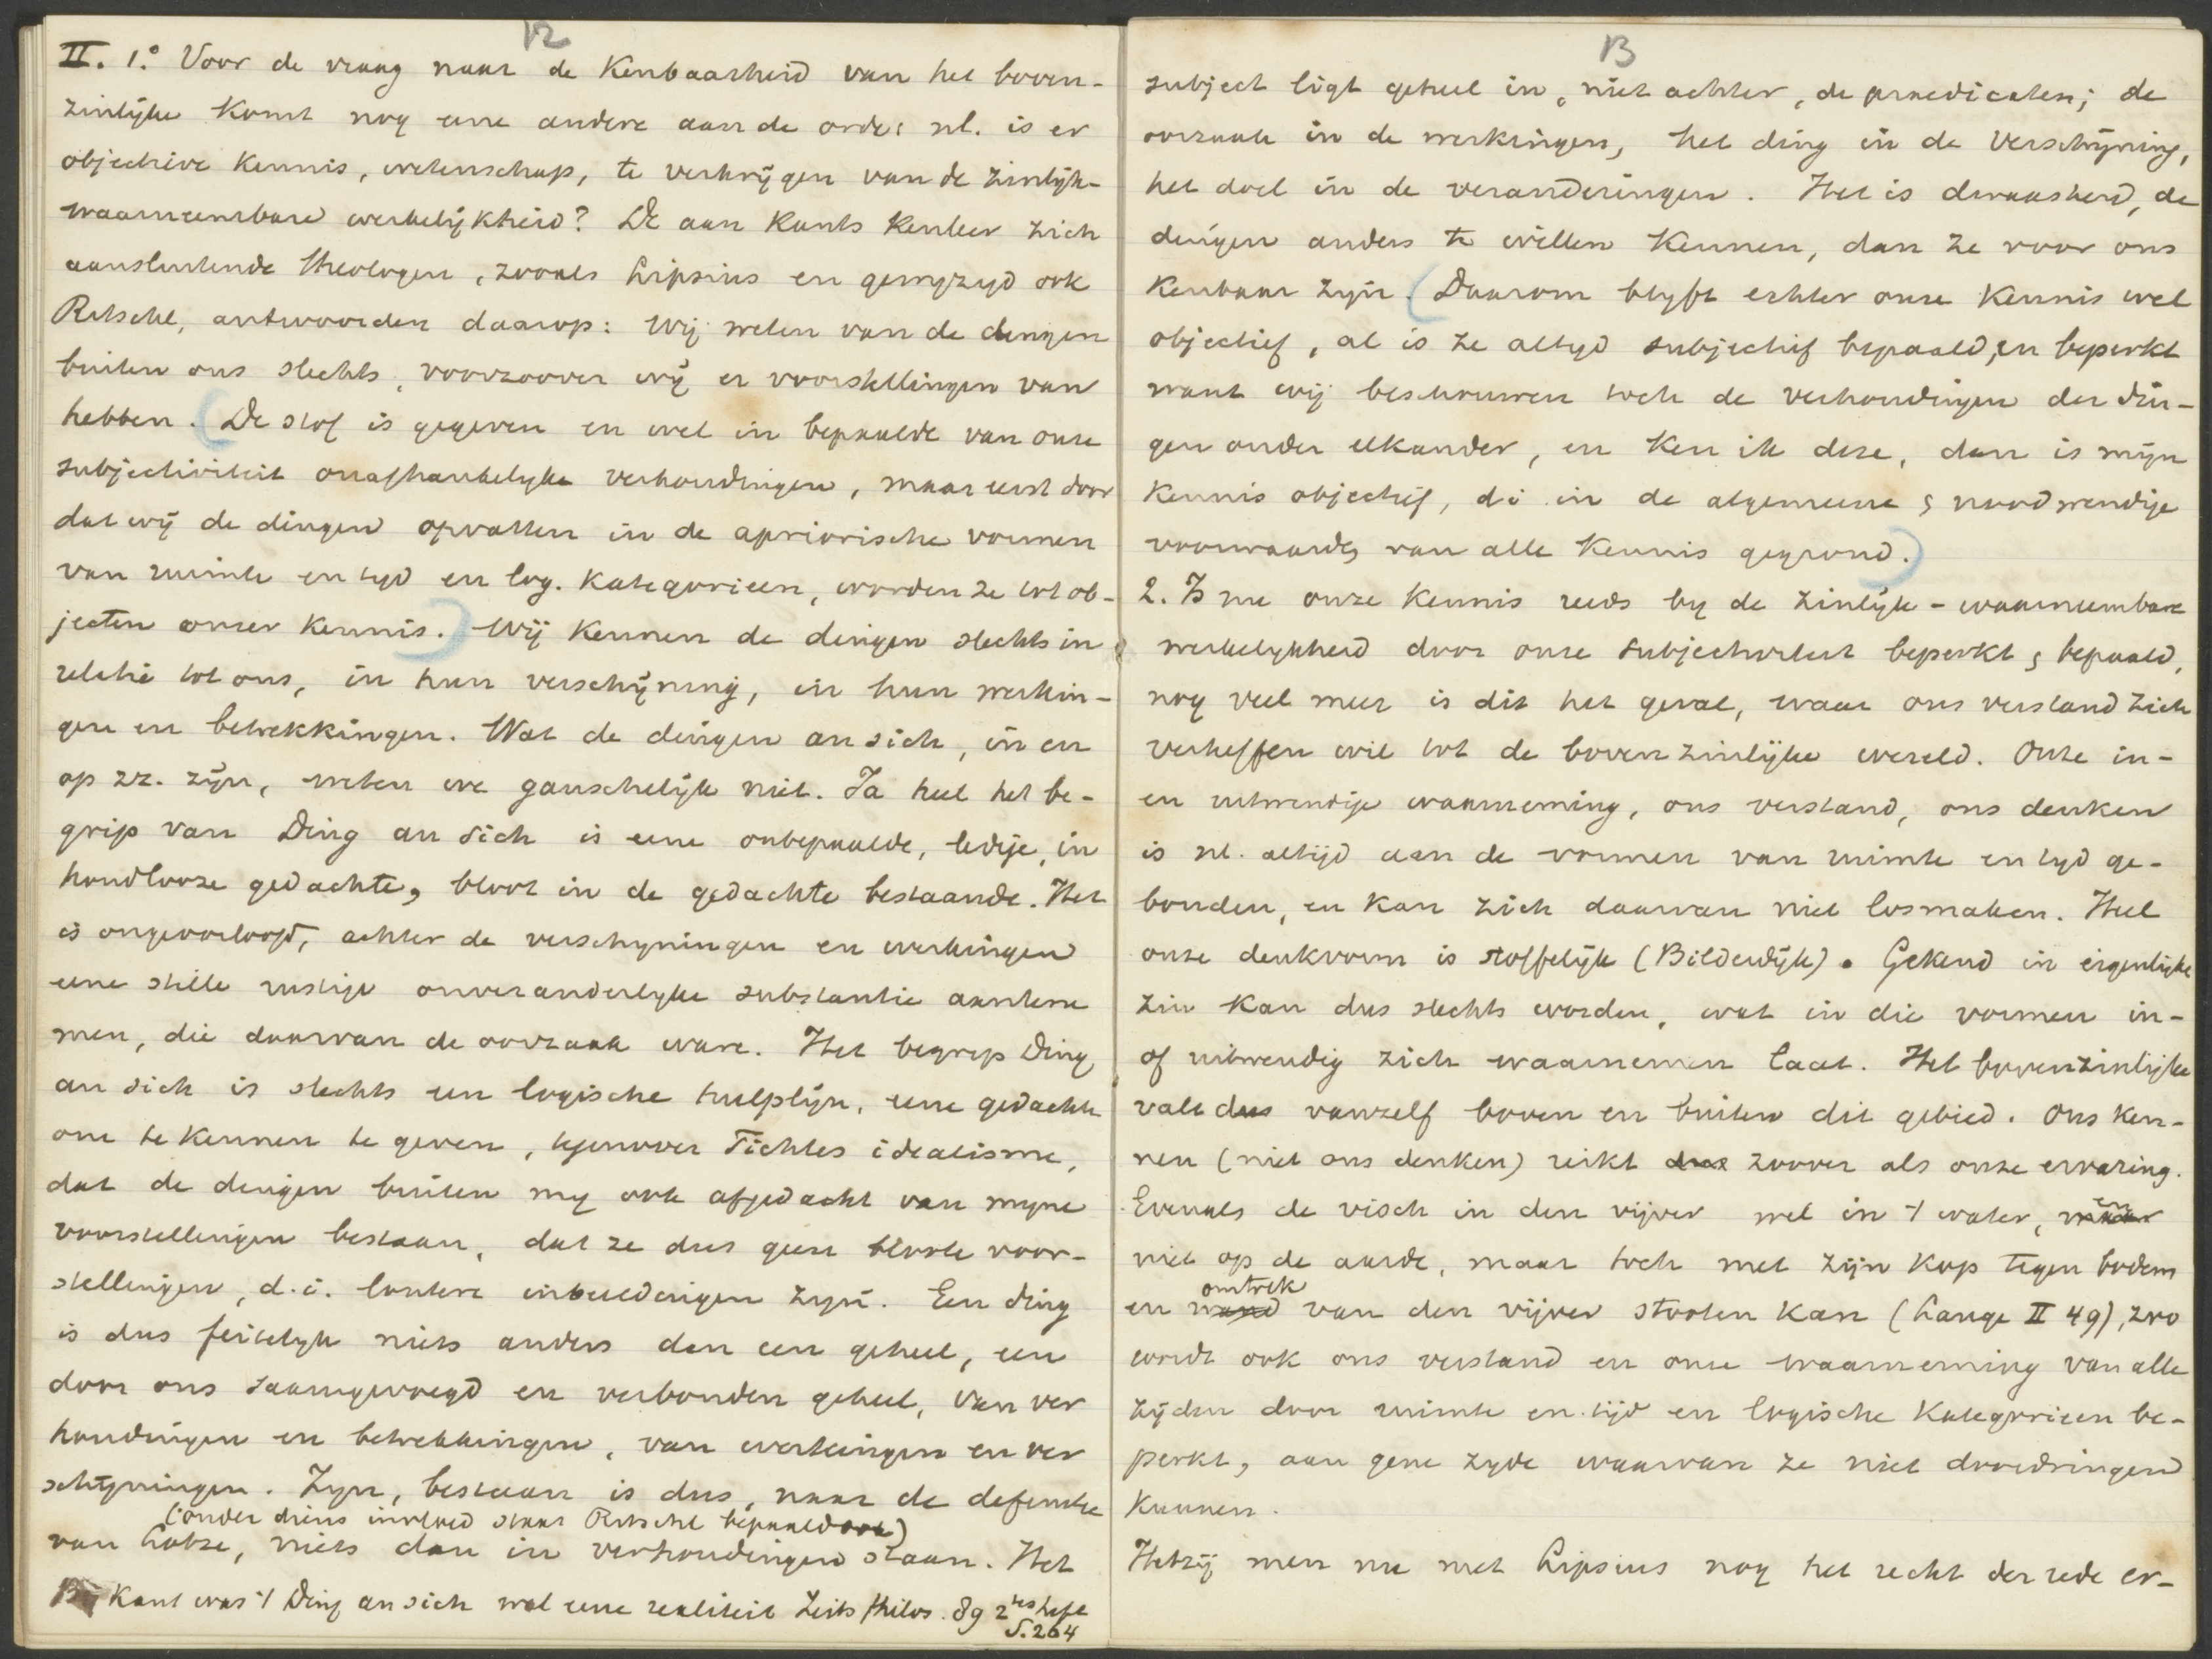 12
II. 1.° Voor de vraag naar de Kenbaarheid van het boven-
zinlijke komt nog eene andere aan de orde: nl. is er
objectieve kennis, wetenschap, te verkrijgen van de zinlijk-
waarneembare werkelijkheid? De aan Kants kenleer zich
aansluitende theologen, zooals Lipsius en gewijzigd ook
Ritschl, antwoorden daarop: Wij weten van de dingen
buiten ons slechts, voorzoover wij er voorstellingen van
hebben. (De stof is gegeven en wel in bepaalde van onze
subjectiviteit onafhankelyke verhoudingen, maar eerst door
dat wij de dingen opvatten in de apriorische vormen
van ruimte en tyd en log. kategorieen, worden ze tot ob-
jecten onzer kennis.) Wij kennen de dingen slechts in
relatie tot ons, in hun verschijning, in hun werkin-
gen en betrekkingen. Wat de dingen an sich, in en
op zz. zijn, weten we ganschelijk niet. Ja heel het be-
grip van Ding an sich is eene onbepaalde, ledige, in
houdlooze gedachte, bloot in de gedachte bestaande. Het
is ongeoorloofd, achter de verschyningen en werkingen
eene stille rustige onveranderlyke substantie aantene
men, die daarvan de oorzaak ware. Het begrip Ding
an sich is slechts een logische hulplijn, eene gedachte
om te kennen te geven, tegenover Fichtes idealisme,
dat de dingen buiten my ook afgedacht van myne
voorstellingen bestaan, dat ze dus geen bloote voor-
stellingen, d.i. loutere inbeeldingen zyn. Een ding
is dus feitelyk niets anders dan een geheel, een
door ons saamgevoegd en verbonden geheel, van ver
houdingen en betrekkingen, van werkingen en ver
schijningen. Zyn, bestaan is dus, naar de definitie
(onder diens invloed staat Ritschl bepaald ook)
van Lotze, niets dan in verhoudingen staan. Het
Bij Kant was 't Ding an sich wel eene realiteit Zeits Philos. 89 2tes heft
S. 264
13
subject ligt geheel in, niet achter, de praedicaten; de
oorzaak in de werkingen, het ding in de verschijning,
het doel in de veranderingen. Het is dwaasheid, de
dingen anders te willen kennen, dan ze voor ons
kenbaar zyn. (Daarom blyft echter onze kennis wel
objectief, al is ze altyd subjectief bepaald, en beperkt
want wij beschouwen toch de verhoudingen der din-
gen onder elkander, en ken ik deze, dan is mijn
kennis objectief, di in de algemeene & noodwendige
voorwaarde, van alle kennis gegrond.)
2. Is nu onze kennis reeds by de zinlijk-waarneembare
werkelykheid door onze subjectiviteit beperkt & bepaald,
nog veel meer is dit het geval, waar ons verstand zich
verheffen wil tot de bovenzinlijke wereld. Onze in-
en uitwendige waarneming, ons verstand, ons denken
is nl. altijd aan de vormen van ruimte en tyd ge-
bonden, en kan zich daarvan niet losmaken. Heel
onze denkvorm is stoffelijk (Bilderdijk). Gekend in eigenlijke
zin kan dus slechts worden, wat in die vormen in-
of uitwendig zich waarnemen laat. Het bovenzinlijke
valt dus vanzelf boven en buiten dit gebied. Ons ken-
nen (niet ons denken) reikt dus zoover als onze ervaring.
Evenals de visch in den vijver wel in 't water, maar en
niet op de aarde, maar toch met zijn kop tegen bodem
omtrek
en wand van den vijver stooten kan (Lange II 49), zoo
wordt ook ons verstand en onze waarneming van alle
zijden door ruimte en tijd en logische kategorieen be-
perkt, aan gene zyde waarvan ze niet doordringen
kunnen.
Hetzij men nu met Lipsius nog het recht der rede er-